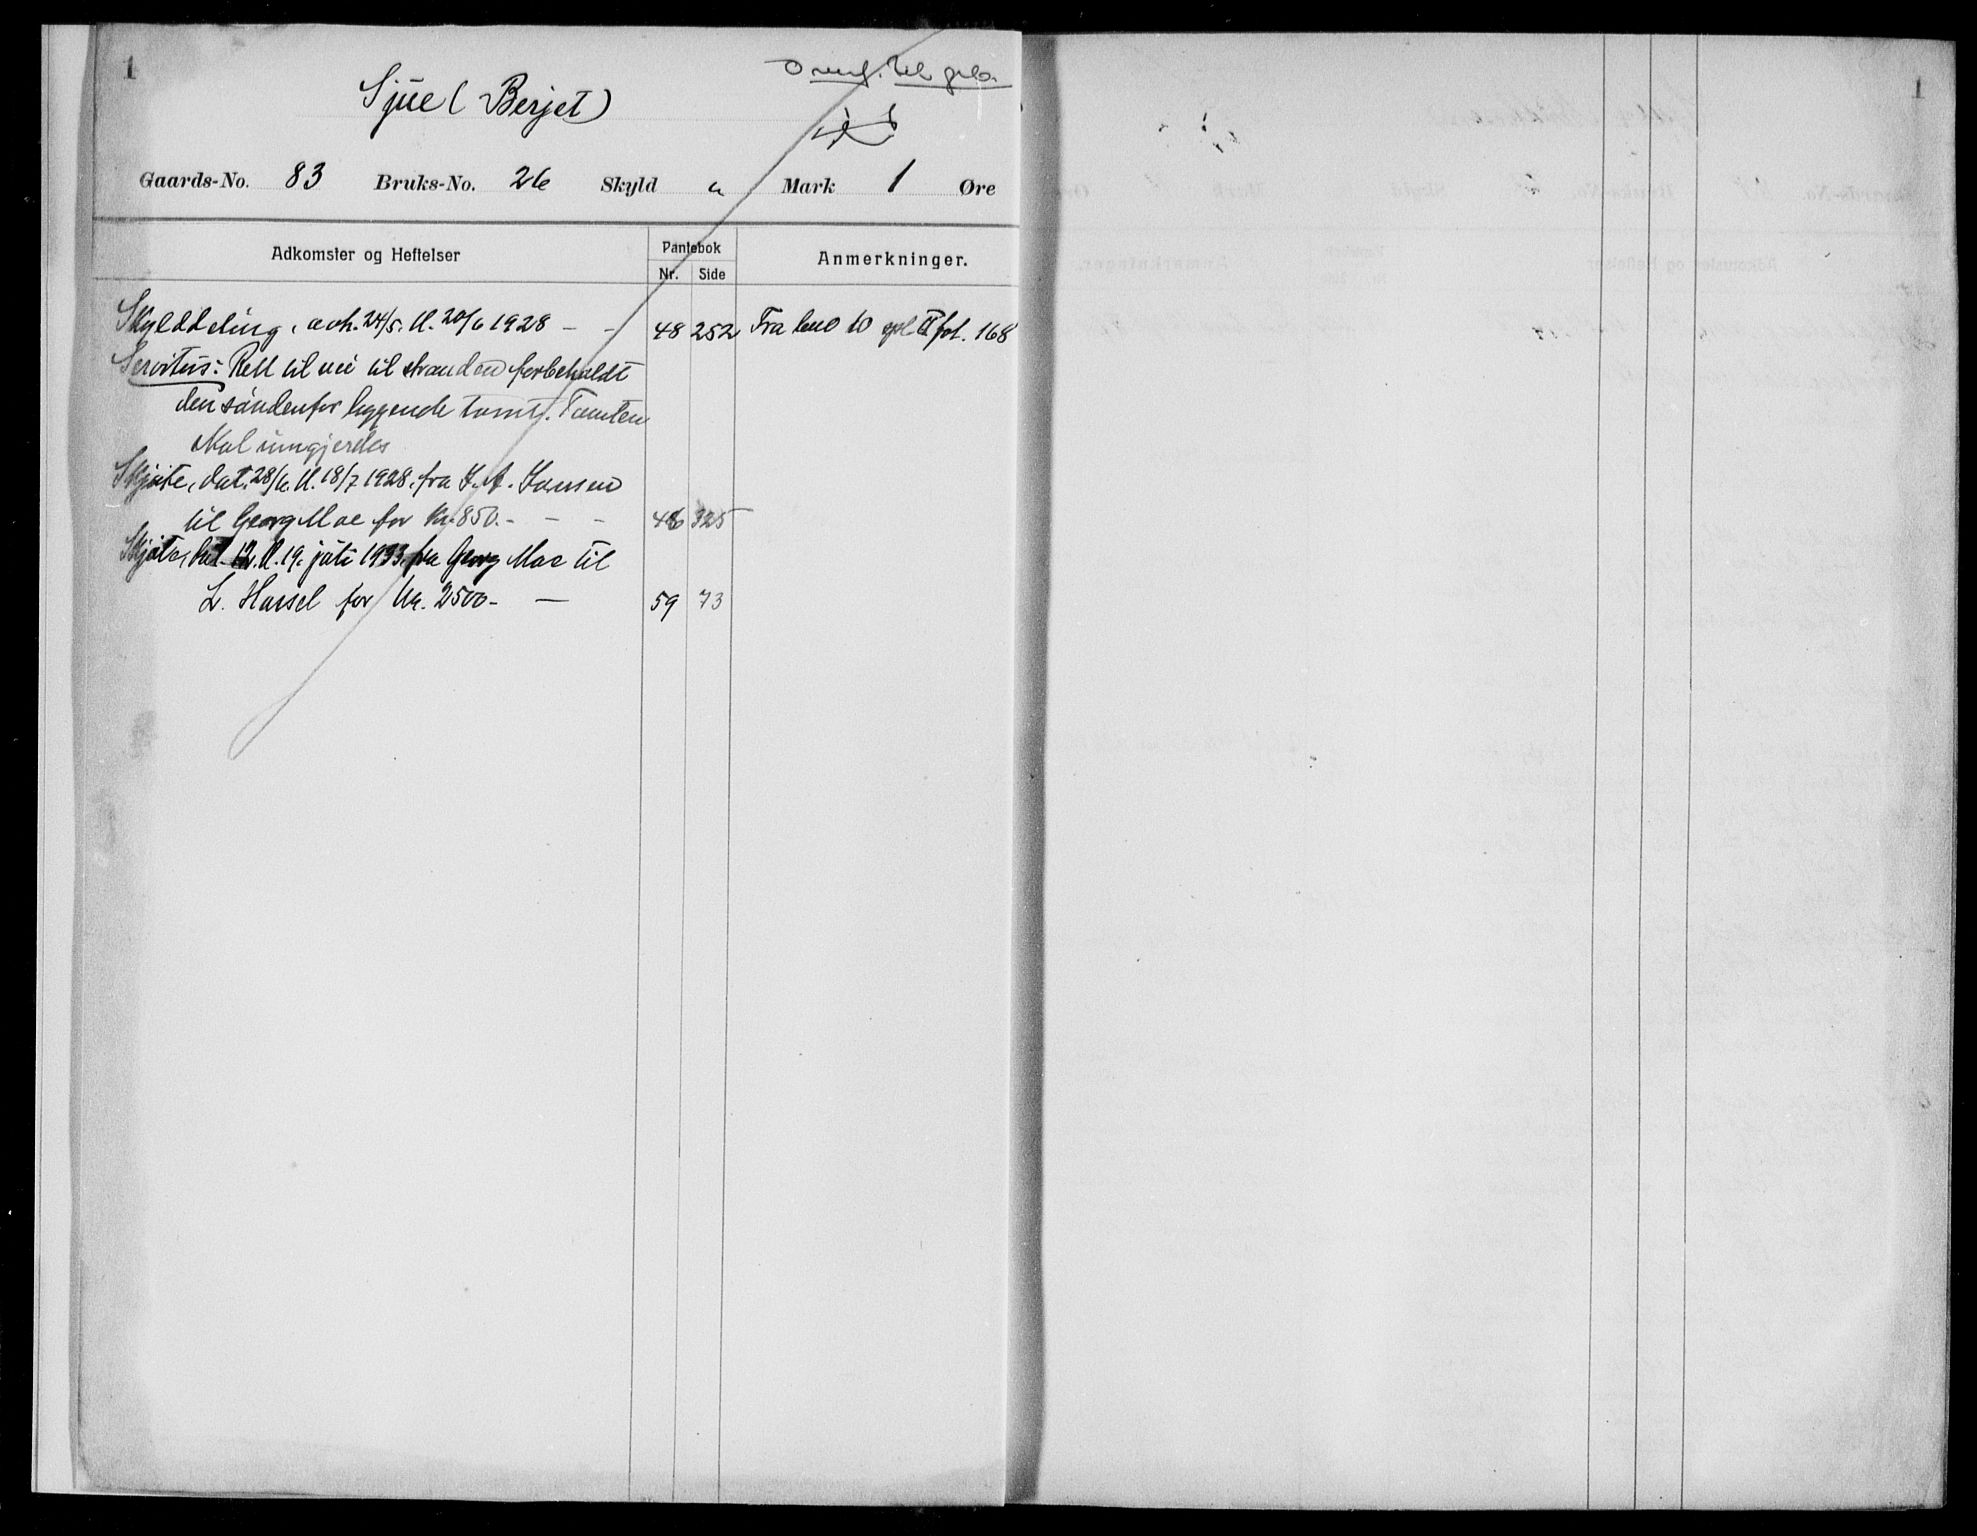 1
Sjue ( Berjet )
Gaards-No. 83 Bruks-No. 26 Skyld " Mark 1 Øre
Adkomster og Heftelser Pantebok Anmerkninger.
Nr. Side
Skylddeling, avh. 24/5. tl. 20/6 1928 – – 48 252 Fra bno 10 gpl II fol. 168
Servitut: Rett til vei til stranden forbeholdt
den søndenfor liggende tomt. Tomten
skal inngjerdes
Skjøte, dat. 28/6. tl. 18/7 1928, fra J. A. Jansen
til Georg Moe for kr. 850.- – – 48 325
Skjøte, dat. 12. tl. 19. juli 1933, fra Georg Moe til
L. Hassel for kr. 2500- – 59 73
1